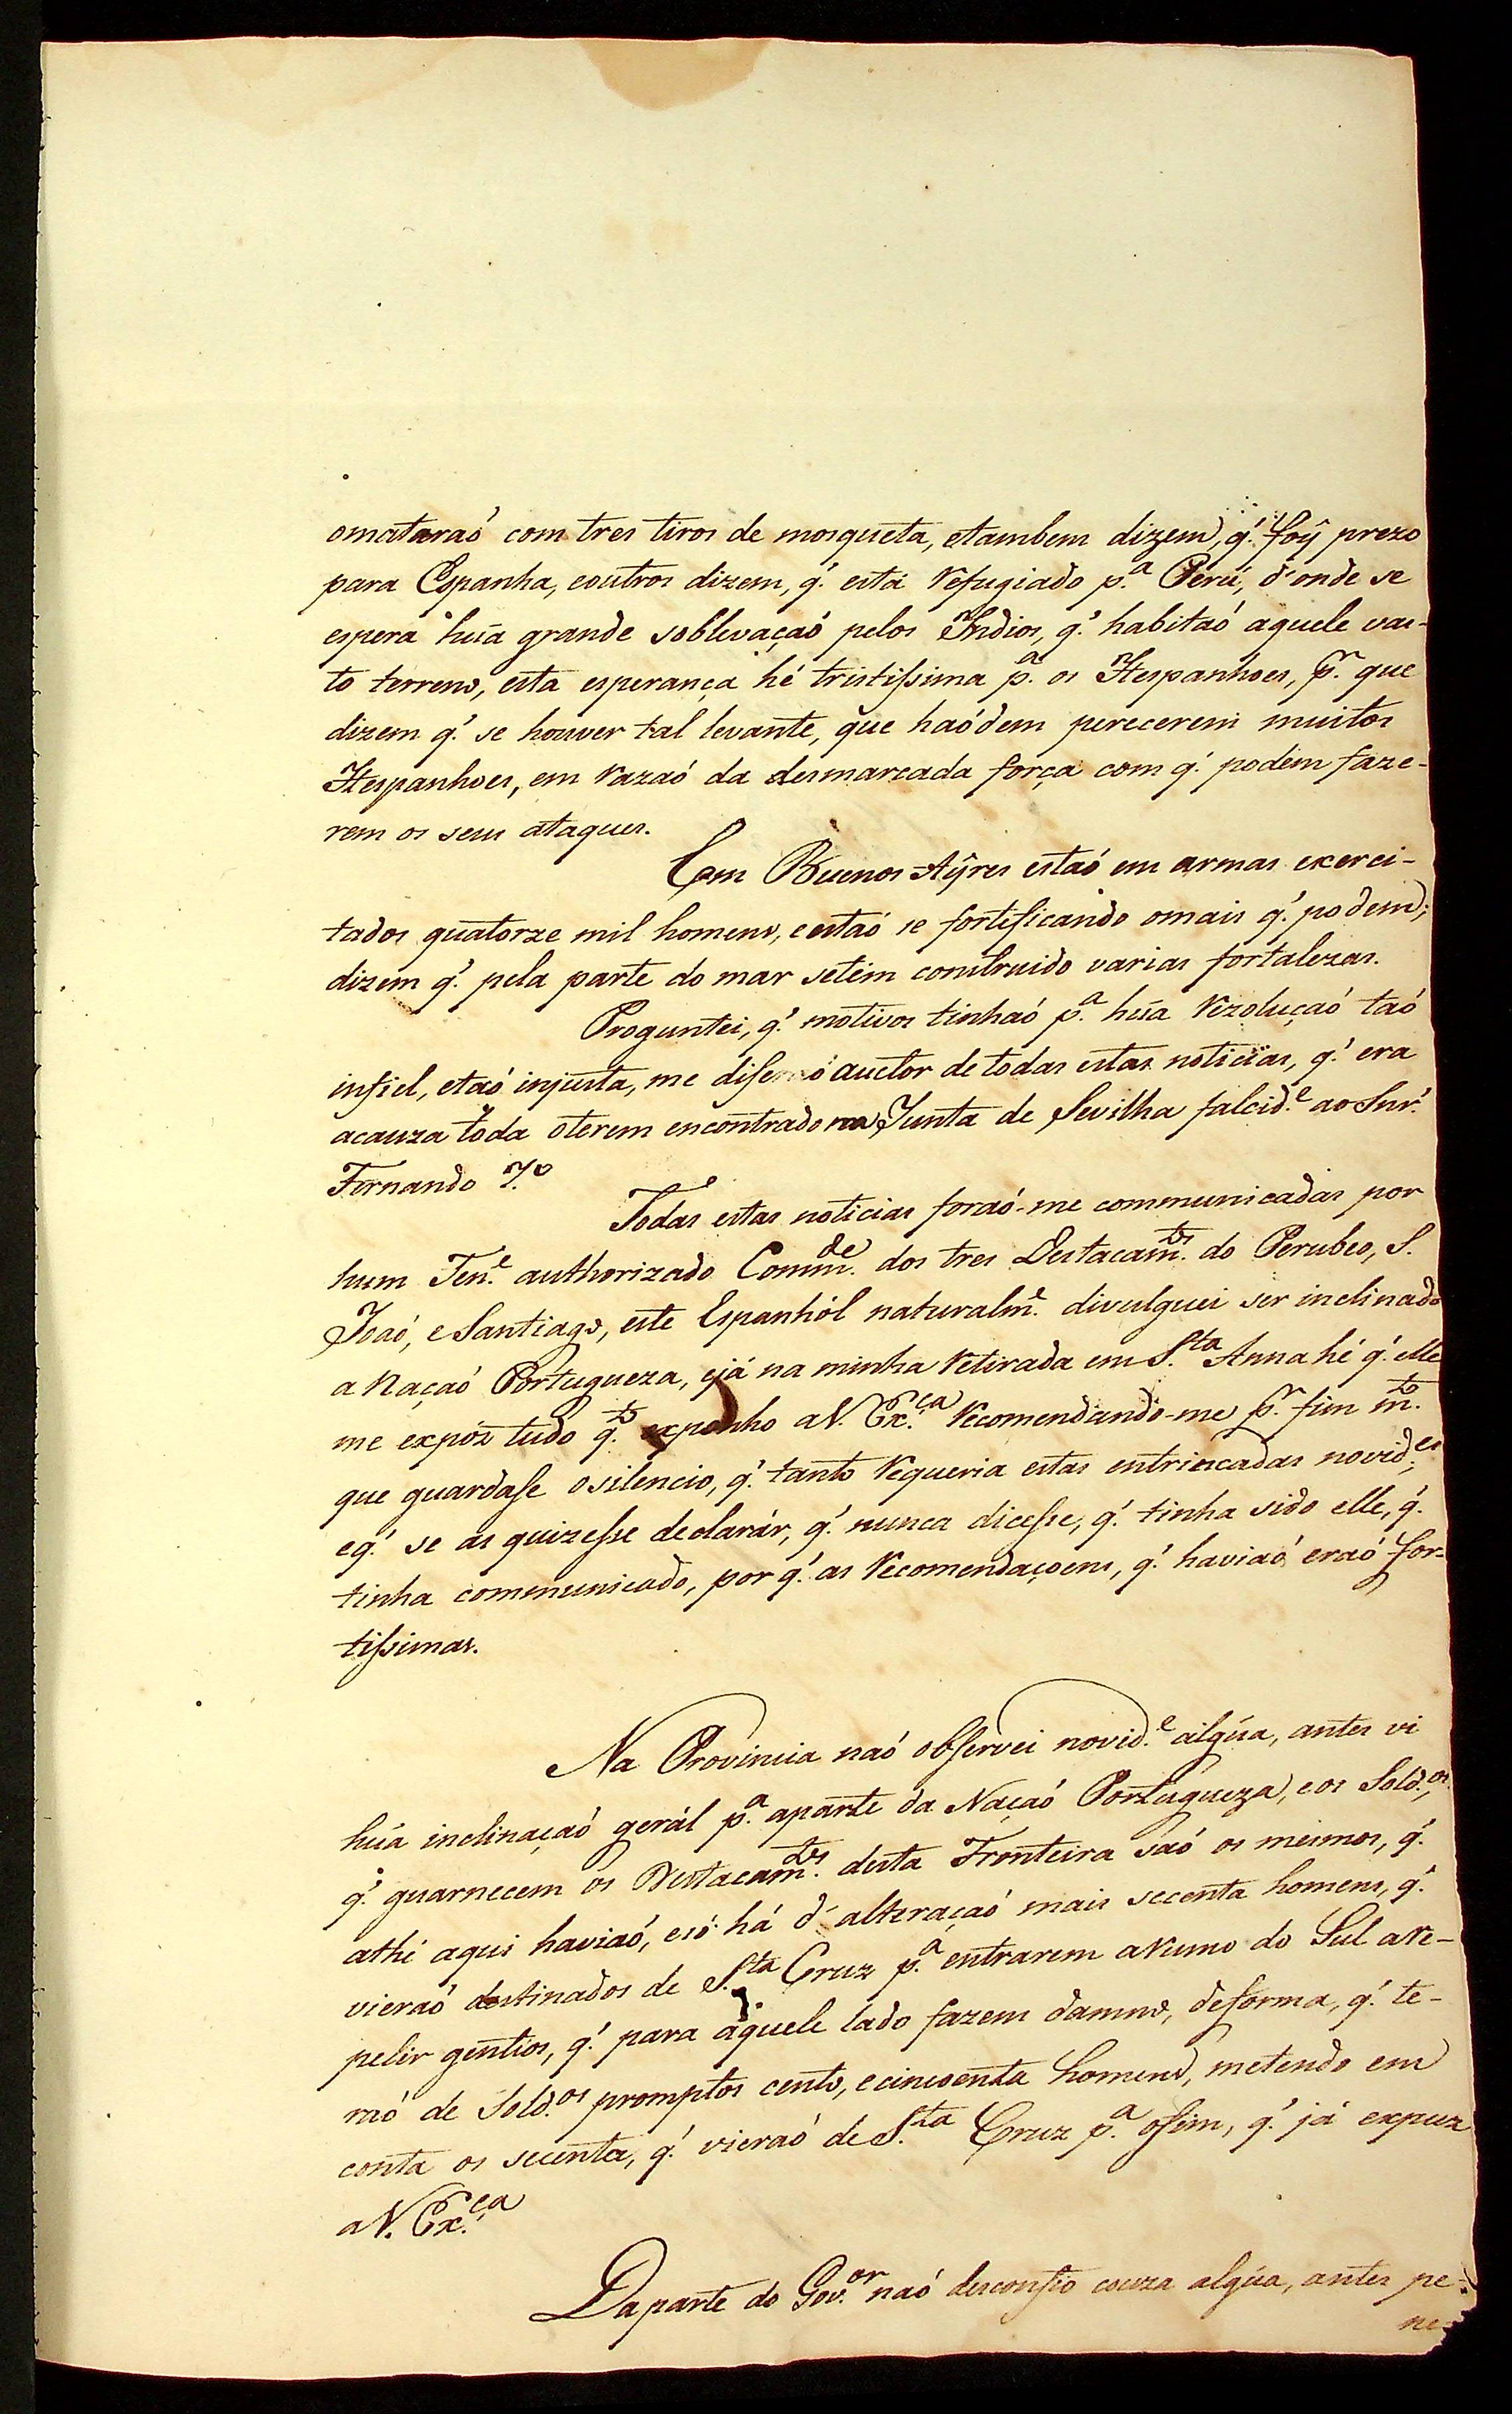 omataraó com tres tiros de mosqueta, etambem dizem, q.' foy prezo
para Espanha, eoutros dizem, q.' está refugiado p.ª Perú, d'onde se
espera hũa grande soblevaçaó pelos Indios, q.' habitaó aquele vas-
to terreno, esta esperança hé tristissima p.ª os Hespanhoes, p.r que
dizem q.' se houver tal levante, que haódem perecerem muitos
Hespanhoes, em razaó da desmarcada força com q.' podem faze-
rem os seus ataques.
Em Buenos Ayres estaó em armas exerci-
tados quatorze mil homens, eestaó se fortificando omais q.' podem;
dizem q.' pela parte do mar setem construido varias fortalezas.
Proguntei, q.' motivos tinhaó p.ª hũa rezoluçaó taó
infiel, etaó injusta, me dise o auctor de todas estas noticias, q.' era
acauza toda oterem encontrado na Junta de Sevilha falcid.e ao Snr.
Fernando 7.º
Todas estas noticias foraó-me communicadas por
hum Ten.e authorizado Comm.de dos tres Destacam.tos do Perubio, S.
Joaó, e Santiago, este Espanhól naturalm.e divulguei ser inclinado
a Naçaó Portugueza, ejá na minha retirada em S.ta Anna hé q.' elle
me expoz tudo q.to exponho aV. Ex.ça recomendando-me p.r fim m.to
que guardase osilencio, q.' tanto requeria estas entrincadas novid.es,
eq.' se as quizesse declarár, q.' nunca dicesse, q.' tinha sido elle, q.'
tinha communicado, por q.' as recomendaçoens, q.' haviaó eraó for-
tissimas.
Na Provincia naó observei novid.e algũa, antes vi
hũa inclinaçaó gerál p.ª aparte da Naçaó Portugueza, eos Sold.os,
q.' guarnecem os Destacam.tos desta Fronteira saó os mesmos, q.'
athé aqui haviaó, esó há d'alteraçaó mais secenta homens, q.'
vieraó destinados de S.ta Cruz p.ª entrarem aRumo do Sul aRe-
pelir gentios, q.' para aquele lado fazem damno, deforma, q.' te-
raó de Sold.os promptos cento, ecincoenta homens, metendo em
conta os secenta, q.' vieraó de S.ta Cruz p.ª ofim, q.' já expuz
aV. Ex.ça
Daparte do Gov.or naó desconfio couza algũa, antes pe-
ne-